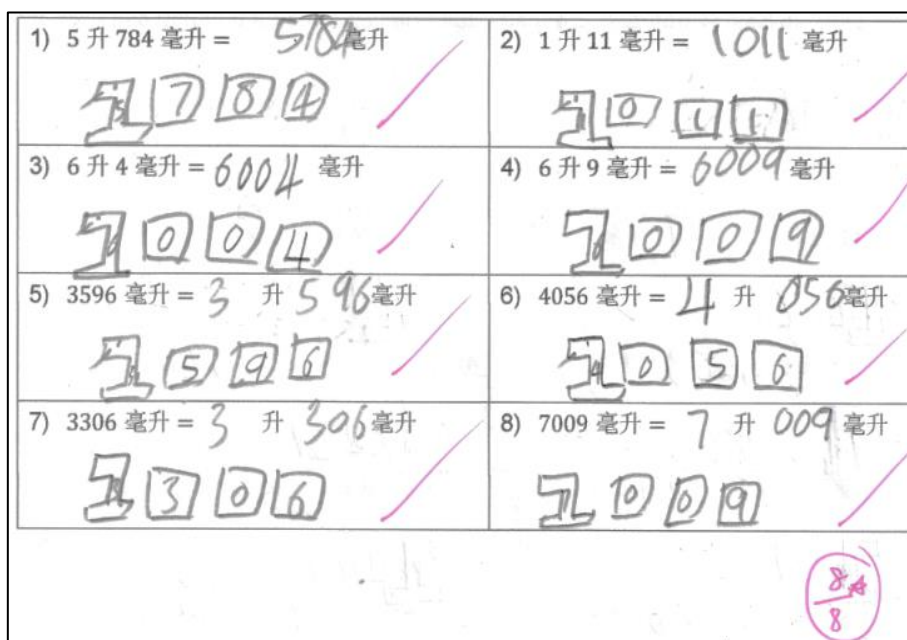 1) 5 升 784 毫升 = 5784 毫升
5 7 8 4
2) 1 升 11 毫升 = 1011 毫升
1 0 1 1
3) 6 升 4 毫升 = 6004 毫升
6 0 0 4
4) 6 升 9 毫升 = 6009 毫升
6 0 0 9
5) 3596 毫升 = 3 升 596 毫升
3 5 9 6
6) 4056 毫升 = 4 升 056 毫升
4 0 5 6
7) 3306 毫升 = 3 升 306 毫升
3 3 0 6
8) 7009 毫升 = 7 升 009 毫升
7 0 0 9
8
8